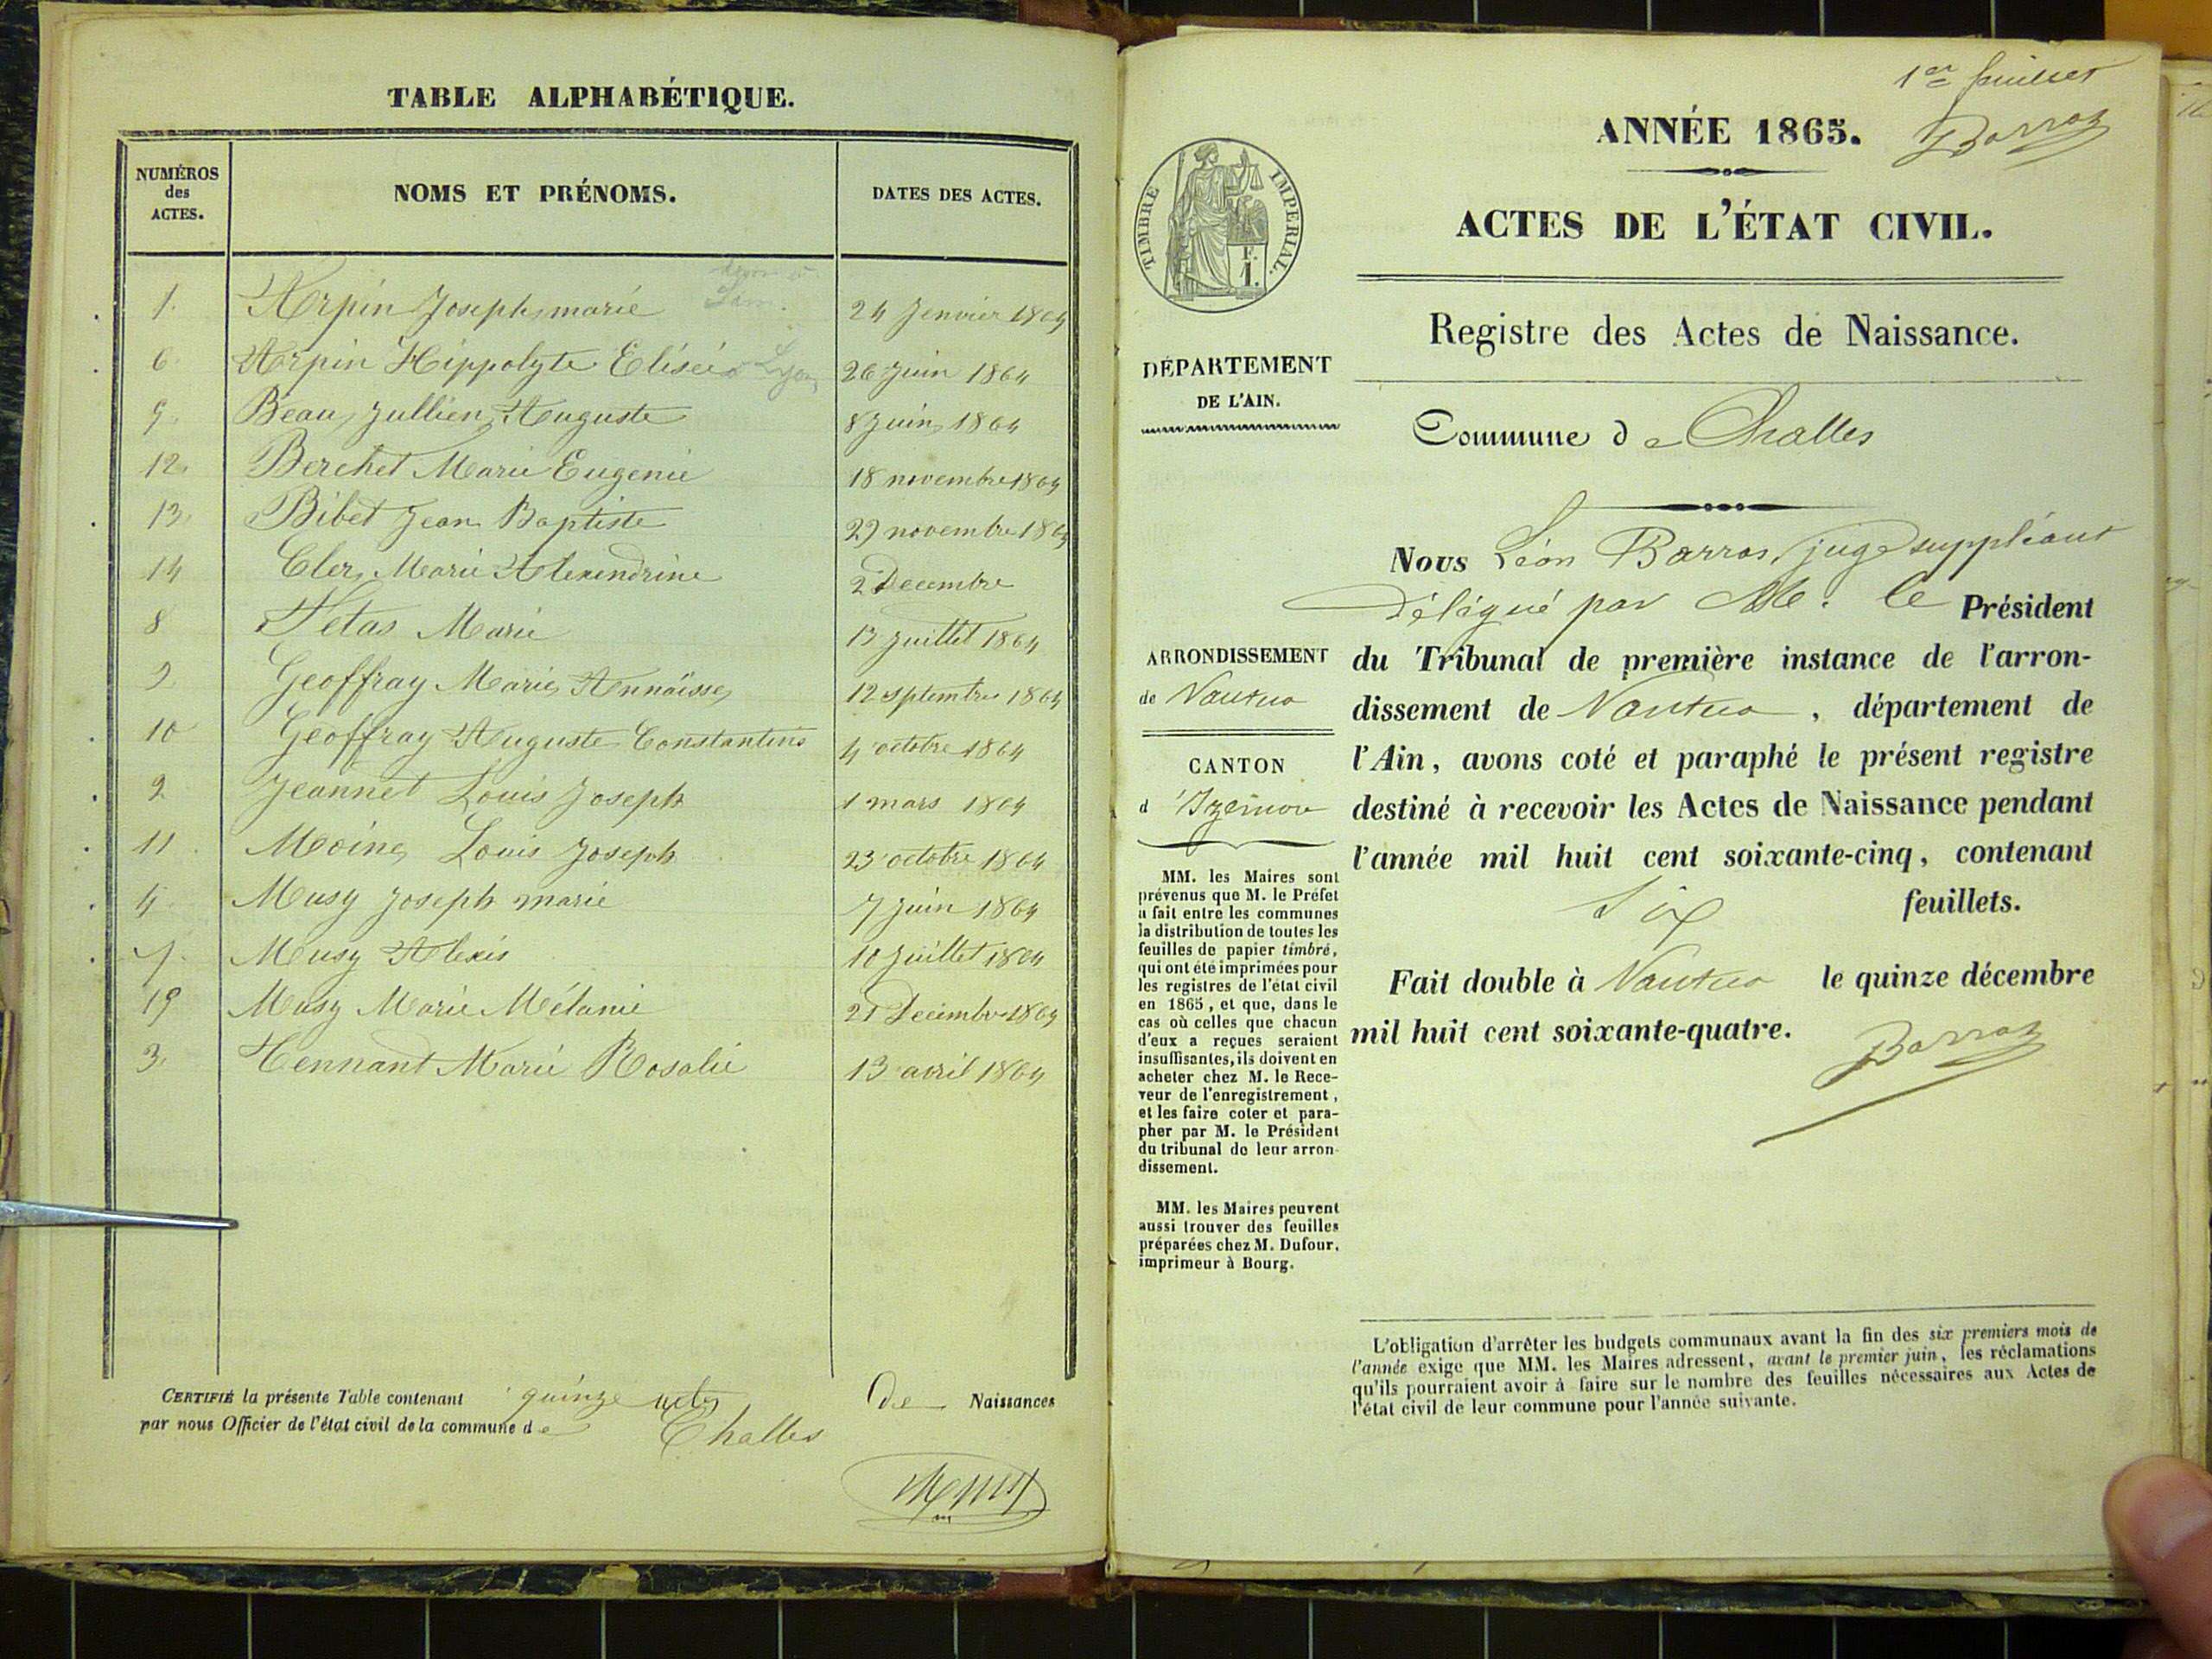 TABLE ALPHABÉTIQUE.
NUMÉROS des ACTES.
NOMS ET PRÉNOMS.
DATES DES ACTES.
1. Arpin Joseph marie 24 Janvier 1864
6 Arpin Hippolyte Elisée Lyon 26 Juin 1864
9. Beau Jullien Auguste 8 Juin 1864
12. Berchet Marie Eugenie 18 novembre 1864
13. Bibet Jean Baptiste 29 novembre 1864
14 Cler Marie Alexendrine 2 Decembre
8 Fetas Marie 13 Juillet 1864
9. Geoffray Marie Annaïsse 12 septembre 1864
10 Geoffray Auguste Constantin 4 octobre 1864
2 Jeannet Louis Joseph 1 mars 1864
11. Moine Louis Joseph 23 octobre 1864
4. Musy Joseph marie 7 Juin 1864
7. Musy Alexis 10 Juillet 1864
19 Musy Marie Mélanie 21 Decembre 1864
3. Tennant Marie Rosalie 13 avril 1864
CERTIFIÉ la présente Table contenant quinze actes de Naissances
par nous Officier de l'état civil de la commune de Challes
1er feuillet
Barras
ANNÉE 1865.
TIMBRE IMPÉRIAL.
F. 1.
ACTES DE L'ÉTAT CIVIL.
Registre des Actes de Naissance.
DÉPARTEMENT
DE L'AIN.
Commune de Challes
Nous Léon Barras, juge suppléant
Délégué par M. le Président
ARRONDISSEMENT
de Nantua
CANTON
d'Izernore
du Tribunal de première instance de l'arron-
dissement de Nantua, département de
l'Ain, avons coté et paraphé le présent registre
destiné à recevoir les Actes de Naissance pendant
l'année mil huit cent soixante-cinq, contenant
Six feuillets.
Fait double à Nantua le quinze décembre
mil huit cent soixante-quatre.
Barras
MM. les Maires sont
prévenus que M. le Préfet
a fait entre les communes
la distribution de toutes les
feuilles de papier timbré,
qui ont été imprimées pour
les registres de l'état civil
en 1865, et que, dans le
cas où celles que chacun
d'eux a reçues seraient
insuffisantes, ils doivent en
acheter chez M. le Rece-
veur de l'enregistrement,
et les faire coter et para-
pher par M. le Président
du tribunal de leur arron-
dissement.
MM. les Maires peuvent
aussi trouver des feuilles
préparées chez M. Dufour,
imprimeur à Bourg.
L'obligation d'arrêter les budgets communaux avant la fin des six premiers mois de
l'année exige que MM. les Maires adressent, avant le premier juin, les réclamations
qu'ils pourraient avoir à faire sur le nombre des feuilles nécessaires aux Actes de
l'état civil de leur commune pour l'année suivante.